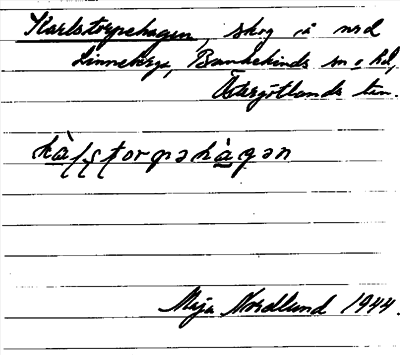 Karlstorpehagen, skog i nrd
Linneberga, Bankekinds sn o hd,
Östergötlands län.
kàḷṣṭorpəhàgən
Maja Nordlund 1944.